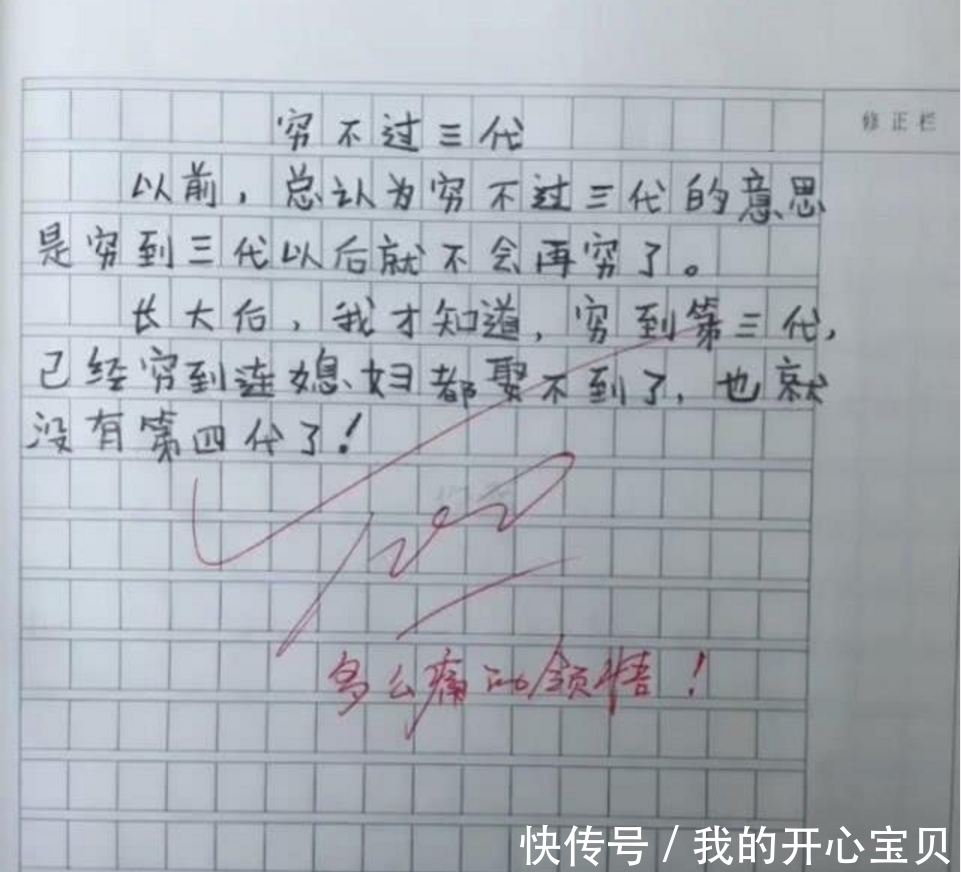 穷不过三代
修正栏
以前，总认为穷不过三代的意思
是穷到三代以后就不会再穷了。
长大后，我才知道，穷到第三代，
已经穷到连媳妇都娶不到了，也就
没有第四代了！
100
多么痛的领悟！
快传号/我的开心宝贝